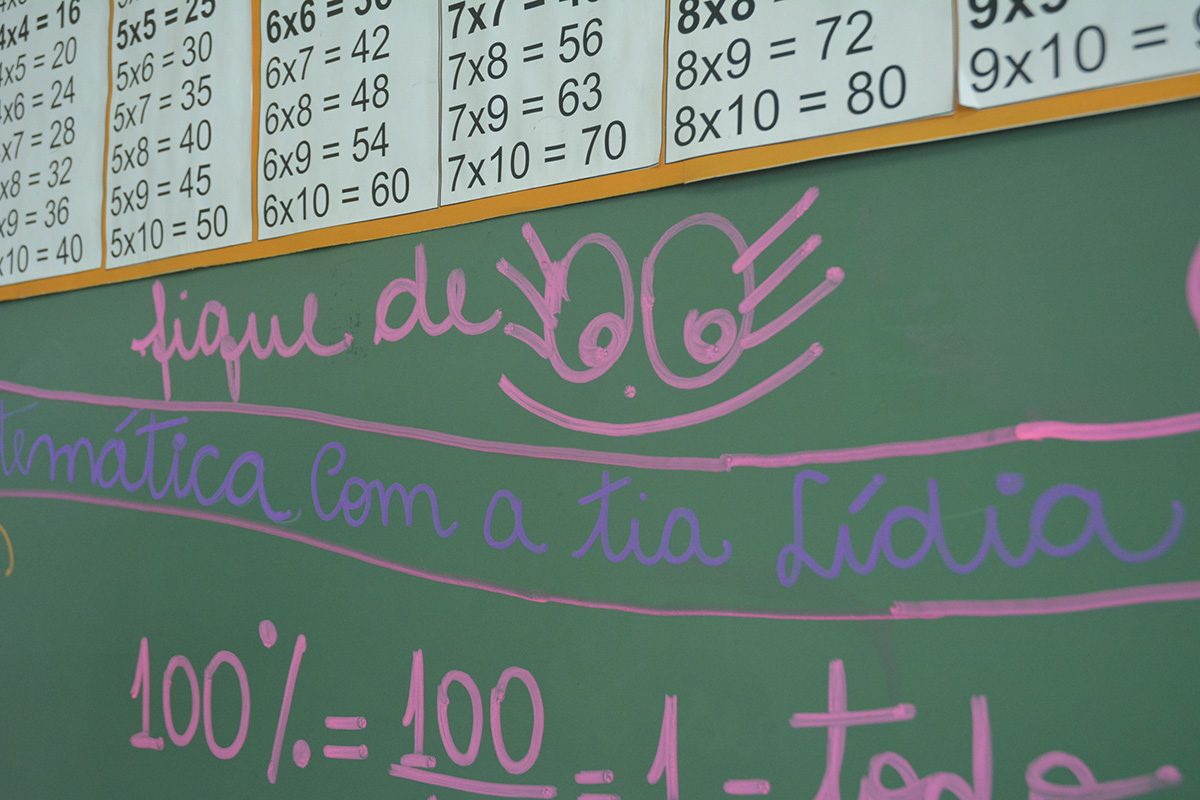 4x4 = 16
4x5 = 20
4x6 = 24
x7 = 28
x8 = 32
x9 = 36
x10 = 40
5x5 = 25
5x6 = 30
5x7 = 35
5x8 = 40
5x9 = 45
5x10 = 50
6x6 = 36
6x7 = 42
6x8 = 48
6x9 = 54
6x10 = 60
7x7 =
7x8 = 56
7x9 = 63
7x10 = 70
8x8
8x9 = 72
8x10 = 80
9x9
9x10 =
fique de
temática com a tia Lídia
100% = 100 = 1 - todo